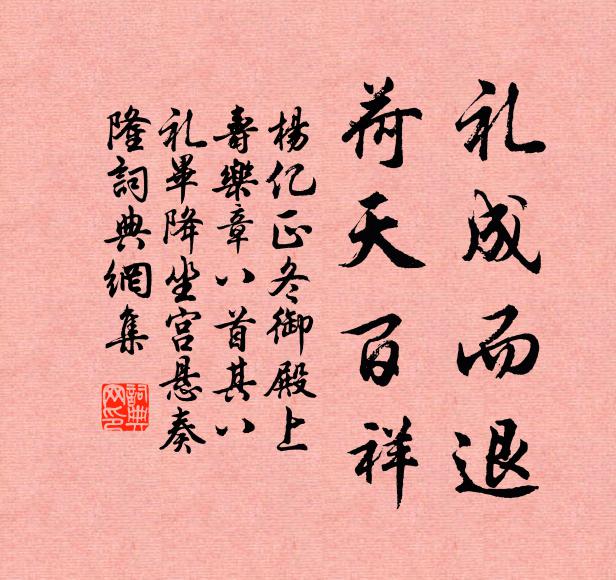 礼成而退
荷天百祥
杨亿正冬御殿上
寿樂章八首其八
礼畢降坐宫悬奏
隆詞典網集
詞典网印